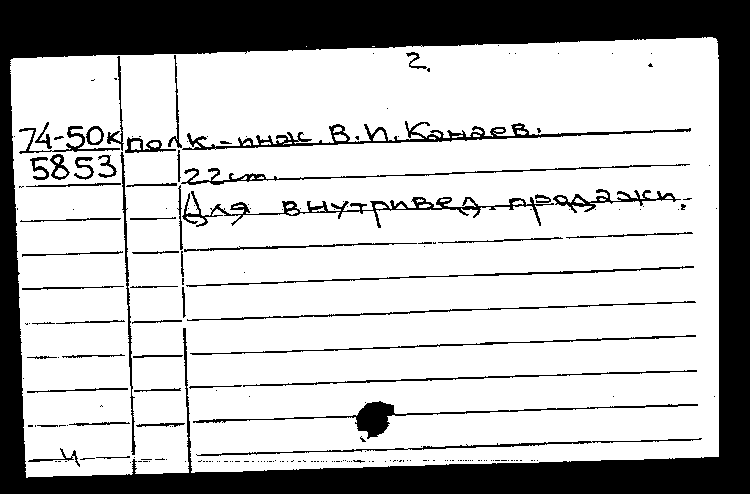 2.
74-50к полк.-инж. В.П. Канаев.
5853 22cm.
Для внутривед. продажи.
ч